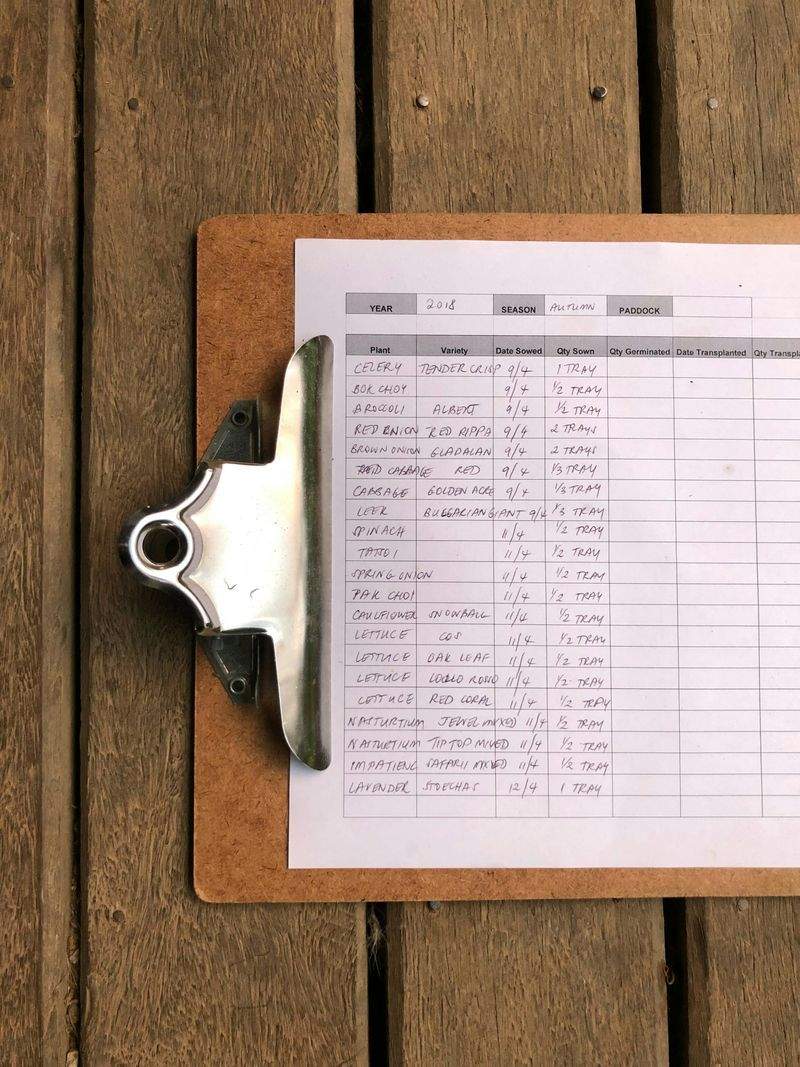 YEAR 2018 SEASON AUTUMN PADDOCK
Plant Variety Date Sowed Qty Sown Qty Germinated Date Transplanted Qty Transpla
CELERY TENDER CRISP 9/4 1 TRAY
BOK CHOY 9/4 1/2 TRAY
BROCCOLI ALBERT 9/4 1/2 TRAY
RED ONION RED RIPPA 9/4 2 TRAYS
BROWN ONION GLADALAN 9/4 2 TRAYS
RED CABBAGE RED 9/4 1/3 TRAY
CABBAGE GOLDEN ACRE 9/4 1/3 TRAY
LEEK BULGARIAN GIANT 9/4 1/3 TRAY
SPINACH 11/4 1/2 TRAY
TATSOI 11/4 1/2 TRAY
SPRING ONION 11/4 1/2 TRAY
PAK CHOI 11/4 1/2 TRAY
CAULIFLOWER SNOWBALL 11/4 1/2 TRAY
LETTUCE COS 11/4 1/2 TRAY
LETTUCE OAK LEAF 11/4 1/2 TRAY
LETTUCE LOLLO ROSSO 11/4 1/2 TRAY
LETTUCE RED CORAL 11/4 1/2 TRAY
NASTURTIUM JEWEL MIXED 11/4 1/2 TRAY
NASTURTIUM TIP TOP MIXED 11/4 1/2 TRAY
IMPATIENS SAFARII MIXED 11/4 1/2 TRAY
LAVENDER STOECHAS 12/4 1 TRAY